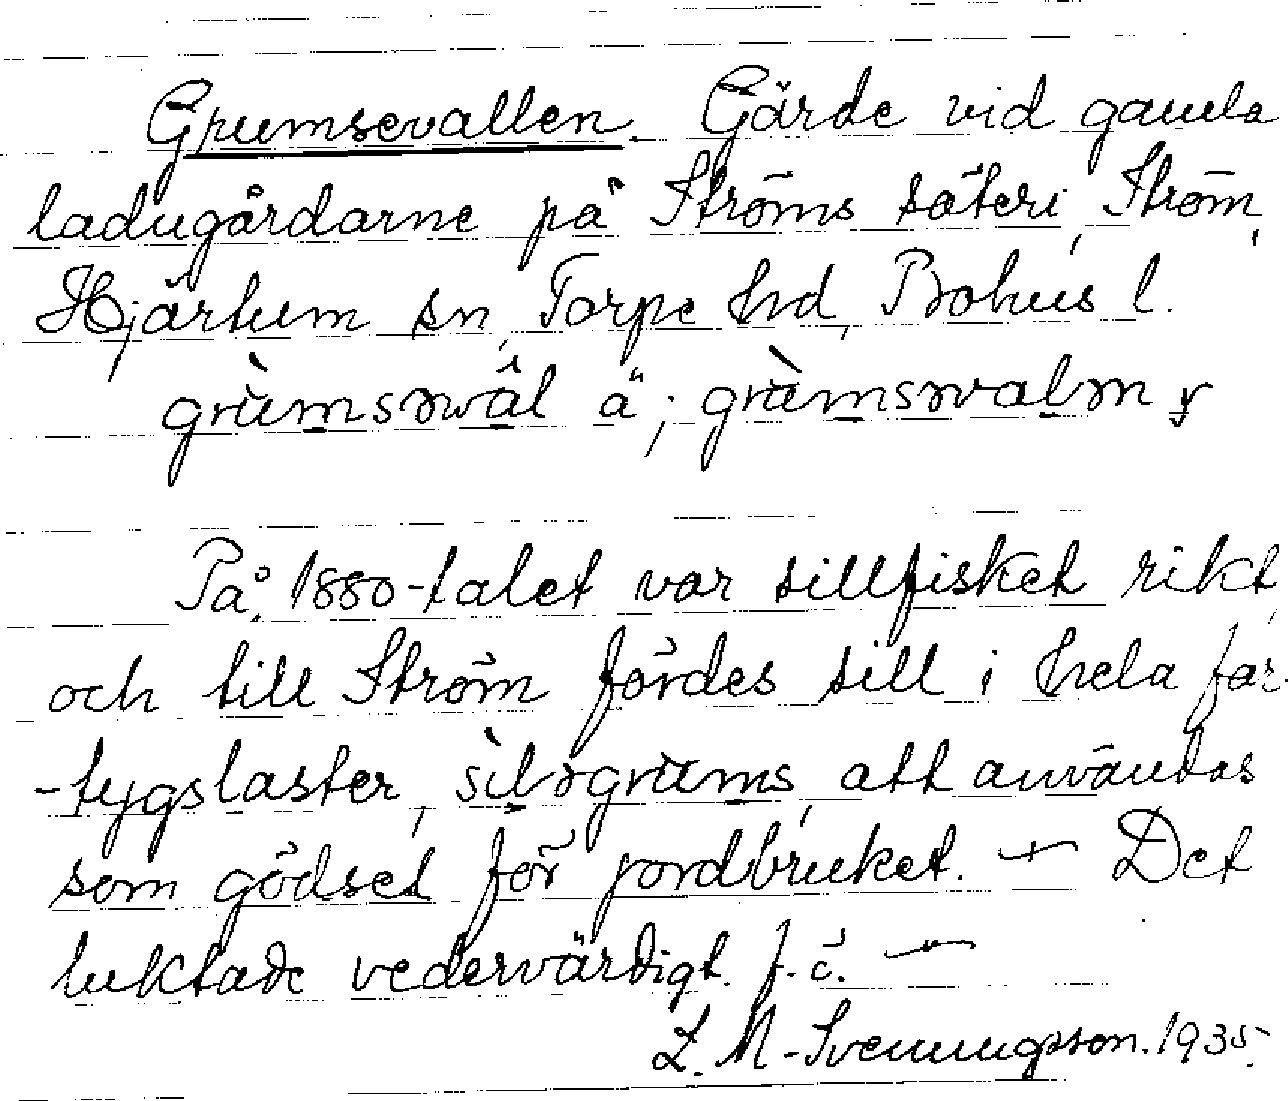 Grumsevallen. Gärde vid gamla
ladugårdarne på Ströms säteri, Ström,
Hjärtum sn, Torpe hrd, Bohus l.
På 1880-talet var sillfisket rikt,
och till Ström fördes sill i hela far-
-tygslaster, att användas
som gödsel för jordbruket. — Det
luktade vedervärdigt. f. ö. —
Z. M-Svenungsson. 1935.